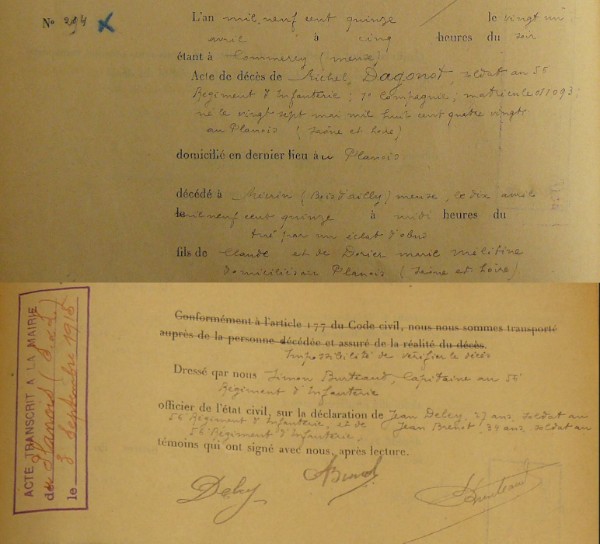 No 294
L'an mil neuf cent quinze le vingt un
avril à cinq heures du soir
étant à Commercy (meuse)
Acte de décès de Michel, Dagonot, soldat au 56
Régiment d'Infanterie ; 7e Compagnie, matricule 011093;
né le vingt sept mai mil huit cent quatre vingt
au Planois (Saône et Loire)
domicilié en dernier lieu à au Planois
décédé à (Bois d'ailly) meuse, le dix avril
le mil neuf cent quinze à midi heures du
tué par un éclat d'obus
fils de Claude et de marie
Domiciliés au Planois (Saône et Loire)
Conformément à l'article 177 du Code civil, nous nous sommes transporté
auprès de la personne décédée et assuré de la réalité du décès.
Impossibilité de vérifier le décès
Dressé par nous Simon Capitaine au 56
Régiment d'Infanterie
officier de l'état civil, sur la déclaration de Jean Delry, 27 ans, soldat au
56 Régiment d'Infanterie, et de Jean Brenot, 34 ans, soldat au
56 Régiment d'Infanterie,
témoins qui ont signé avec nous, après lecture.
ACTE TRANSCRIT A LA MAIRIE
du Planois (S & L)
le 3 septembre 1916